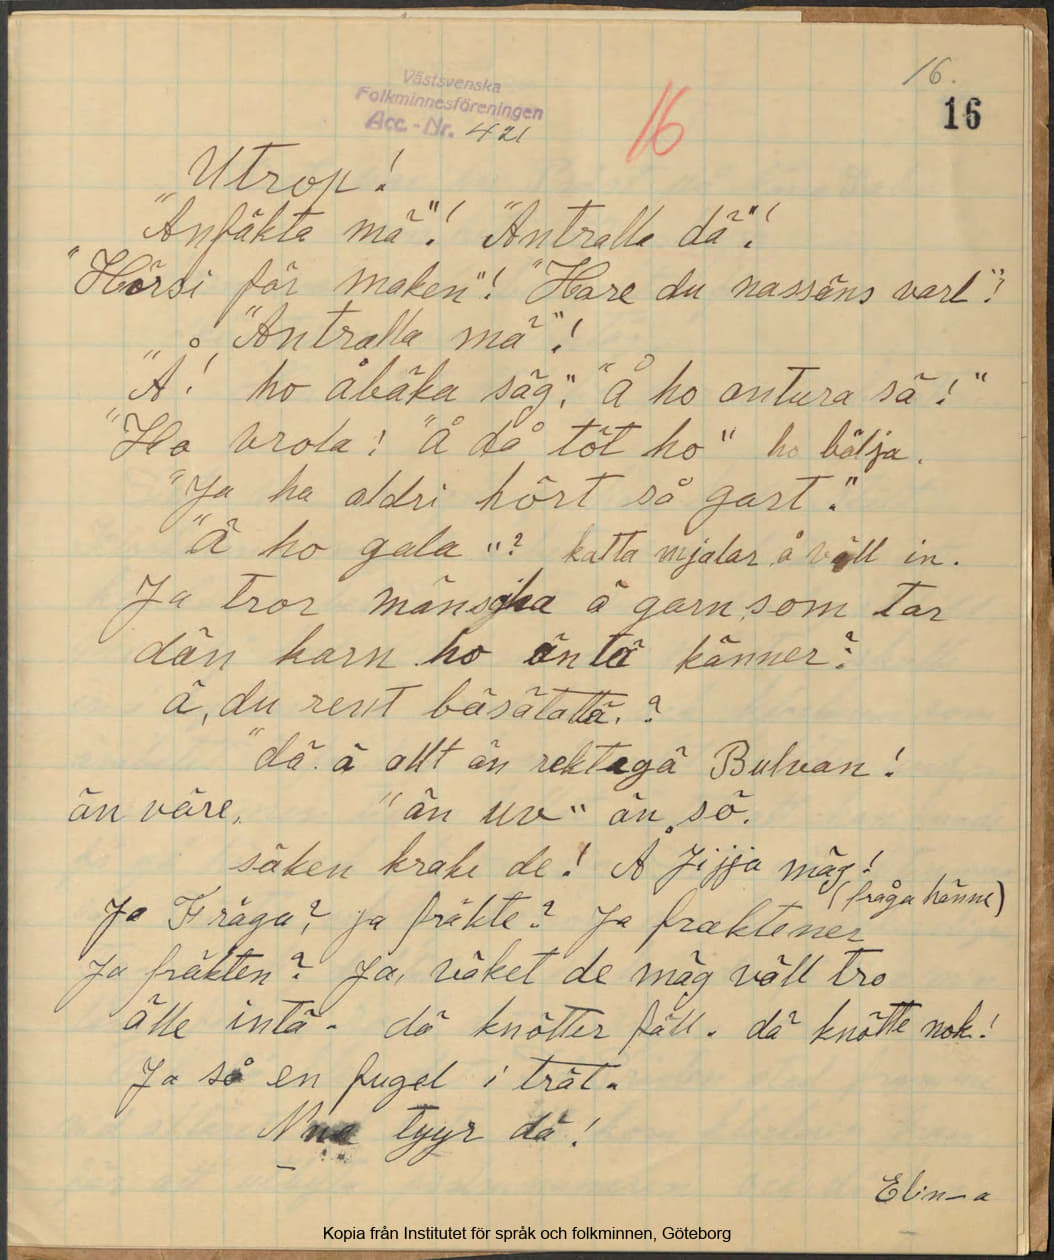 16.
16
Västsvenska
Folkminnesföreningen
Acc.-Nr. 421
16
Utrop!
"Anfäkta mä"! "Antralla dä"!
"Hörsi för maken"! "Hare du nassëns varl"!
"Antralla mä"!
"Å! ho åbäka säg", "Å ho antura sä!"
"Ho vrola! "Å då töt ho" ho bälja.
"Ja ha aldri hört så gart."
"Ä ho gala"? katta mjalar å väll in.
Ja tror mänsgha ä garn som tar
dän karn ho äntä känner?
ä, du rent bäsätattä.?
"dä ä allt än rektegä Bulvan!
än väre, "än uv" än sö.
säken krake de! Å Jijja mäg!
(fråga hänne)
Ja Fräga? ja fräkte? Ja fræktener
Ja fräkten? Ja, väket de mäg väll tro
älle intä- dä knötter fäll. dä knötte nok!
Ja så en fugel i trät.
tyyr dä!
Elin-a
Kopia från Institutet för språk och folkminnen, Göteborg